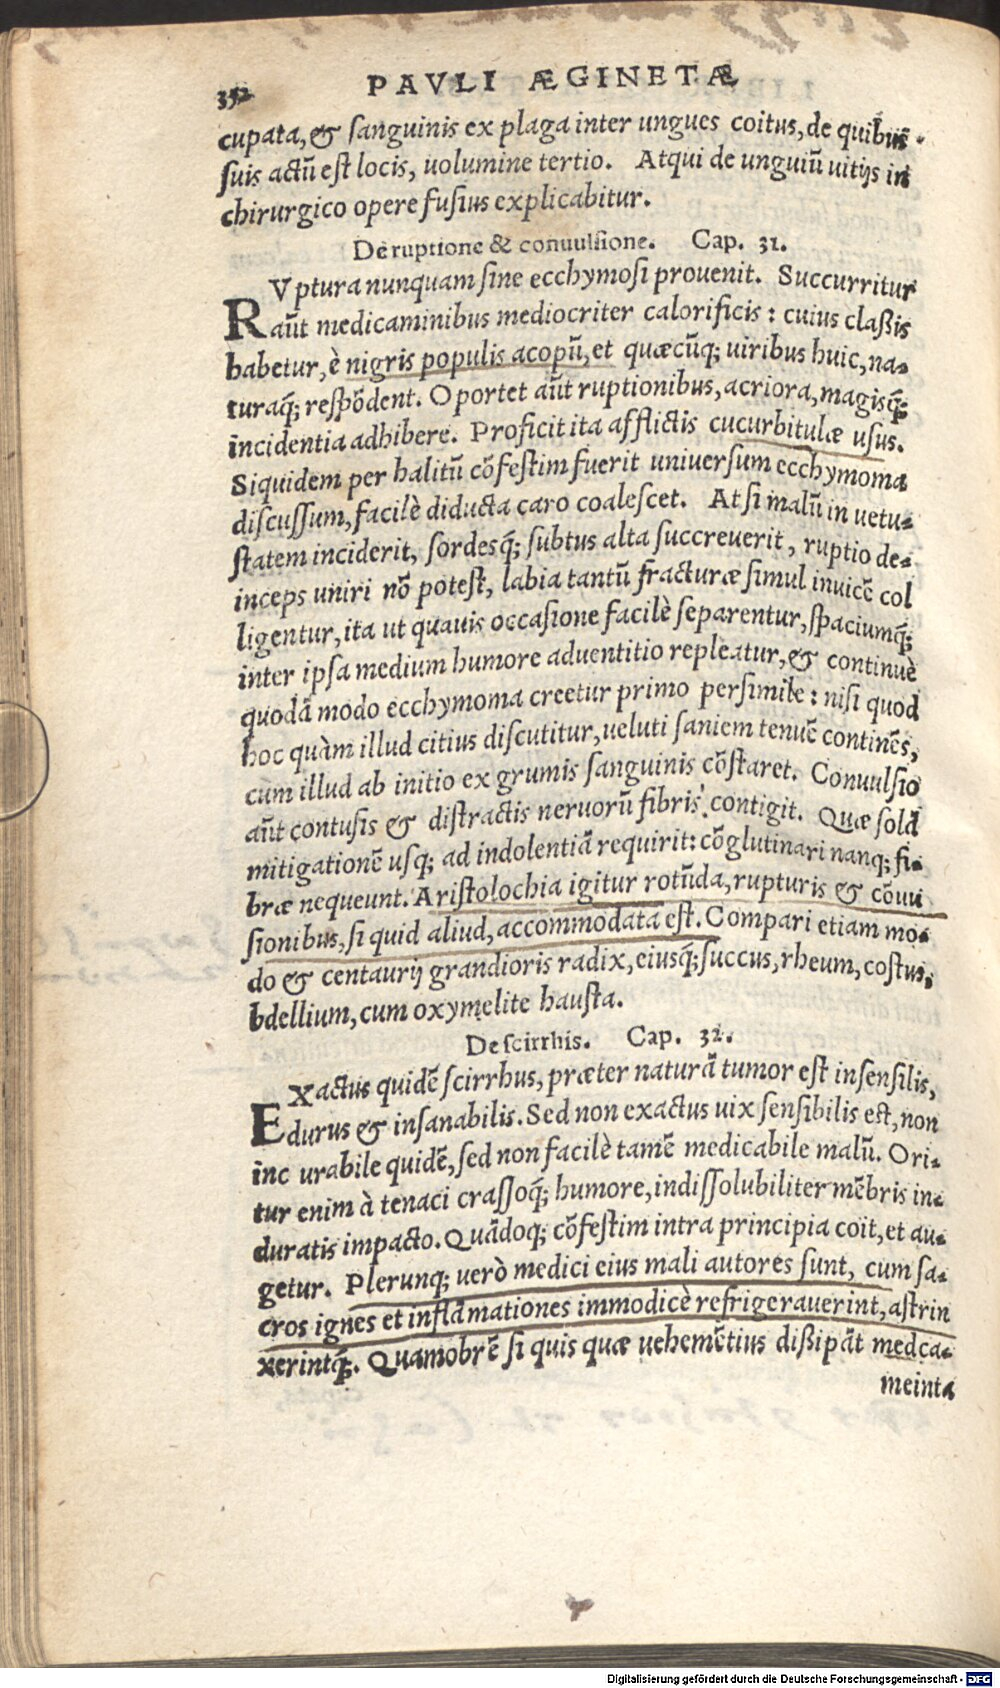 352
PAVLI ÆGINETÆ
cupata, & sanguinis ex plaga inter ungues coitus, de quibus
suis actū est locis, uolumine tertio. Atqui de unguiū uitijs in
chirurgico opere fusius explicabitur.
De ruptione & conuulsione. Cap. 31.
RVptura nunquam sine ecchymosi prouenit. Succurritur
aūt medicaminibus mediocriter calorificis: cuius claßis
habetur, è nigris populis acopū, et quæcūq; uiribus huic, na-
turaq́; respōdent. Oportet aūt ruptionibus, acriora, magisq́;
incidentia adhibere. Proficit ita afflictis cucurbitulæ usus.
Siquidem per halitū cōfestim fuerit uniuersum ecchymoma
discussum, facilè diducta caro coalescet. At si malū in uetu-
statem inciderit, sordesq́; subtus alta succreuerit, ruptio de-
inceps uniri nō potest, labia tantū fracturæ simul inuicē col
ligentur, ita ut quauis occasione facilè separentur, spaciumq́;
inter ipsa medium humore aduentitio repleatur, & continuè
quodā modo ecchymoma creetur primo persimile: nisi quod
hoc quàm illud citius discutitur, ueluti saniem tenuē continēs,
cum illud ab initio ex grumis sanguinis cōstaret. Conuulsio
aūt contusis & distractis neruorū fibris contigit. Quæ solā
mitigationē usq; ad indolentiā requirit: cōglutinari nanq; fi-
bræ nequeunt. Aristolochia igitur rotūda, rupturis & cōuul
sionibus, si quid aliud, accommodata est. Compari etiam mo-
do & centaurij grandioris radix, eiusq́; succus, rheum, costus,
bdellium, cum oxymelite hausta.
De scirrhis. Cap. 32.
EXactus quidē scirrhus, præter naturā tumor est insensilis,
durus & insanabilis. Sed non exactus uix sensibilis est, non
inc urabile quidē, sed non facilè tamē medicabile malū. Ori-
tur enim à tenaci crassoq́; humore, indissolubiliter mēbris in-
duratis impacto. Quādoq; cōfestim intra principia coit, et au-
getur. Plerunq; uerò medici eius mali autores sunt, cum sa-
cros ignes et inflāmationes immodicè refrigerauerint, astrin
xerintq́;. Quamobrē si quis quæ uehemētius dißipāt medca-
meinta
Digitalisierung gefördert durch die Deutsche Forschungsgemeinschaft - DFG